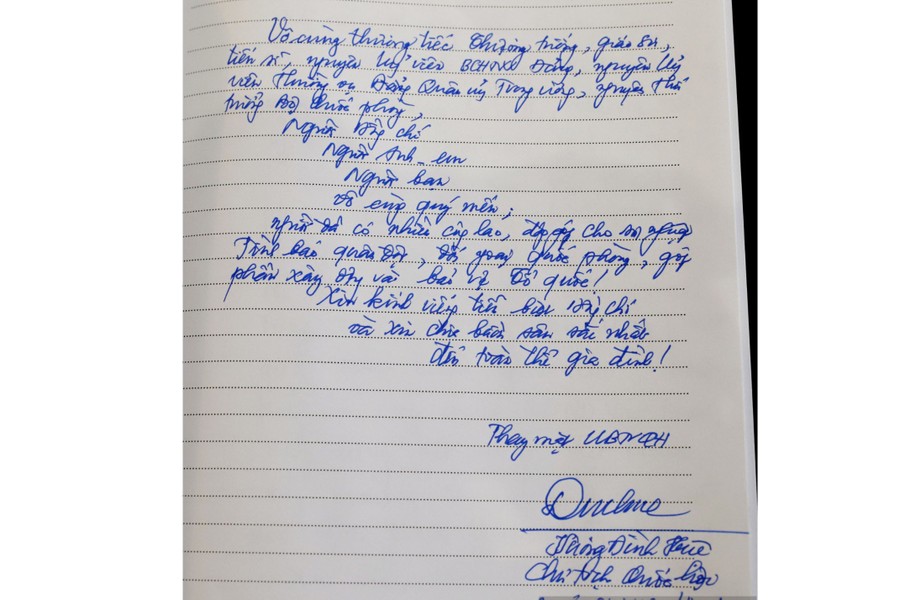 Vô cùng thương tiếc Thượng tướng, giáo sư,
tiến sĩ, nguyên Uỷ viên BCHTW Đảng, nguyên Uỷ
viên Thường vụ Đảng Quân uỷ Trung ương, nguyên Thứ
trưởng Bộ Quốc phòng,
Người đồng chí
Người Anh - em
Người bạn
Vô cùng quý mến;
người đã có nhiều công lao, đóng góp cho sự nghiệp
Tình báo quân đội, đối ngoại quốc phòng, góp
phần xây dựng và bảo vệ Tổ quốc!
Xin kính viếng tiễn biệt đồng chí
và xin chia buồn sâu sắc nhất
đến toàn thể gia đình!
Thay mặt UBTVQH
Vương Đình Huệ
Chủ tịch Quốc hội